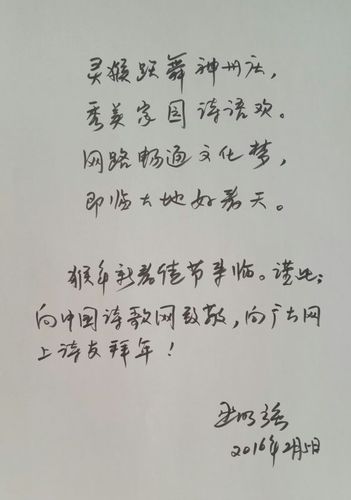 灵猴跃舞神州庆，
秀美家园诗语欢。
网路畅通文化梦，
即临大地好春天。
猴年新春佳节来临。谨此：
向中国诗歌网致敬，向广大网
上诗友拜年！
2016年2月5日